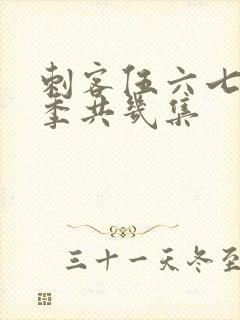 刺客伍六七
季共幾集
三十一天冬至